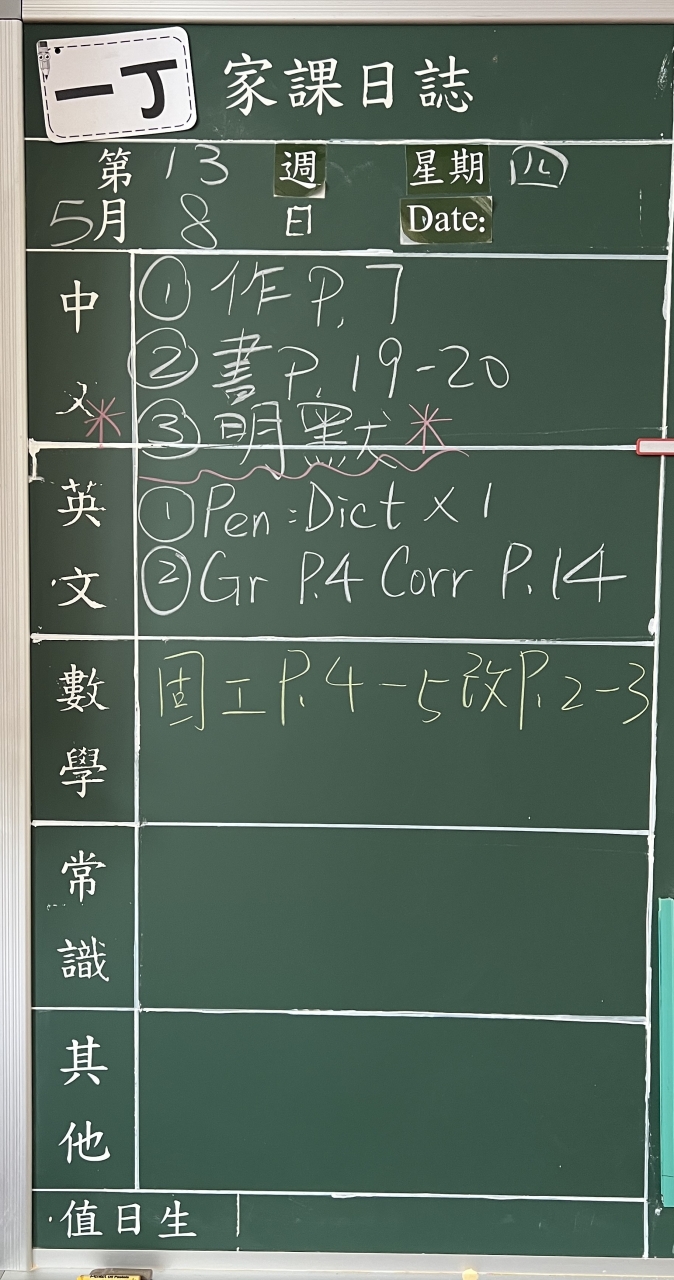 一丁 家課日誌
第 13 週 星期 四
5月 8 日 Date:
中文 ① 作 P. 7
② 書 P. 19-20
* ③ 明默 *
英文 ① Pen : Dict x 1
② Gr P.4 Corr P. 14
數學 固工 P. 4-5 改 P. 2-3
常識
其他
值日生